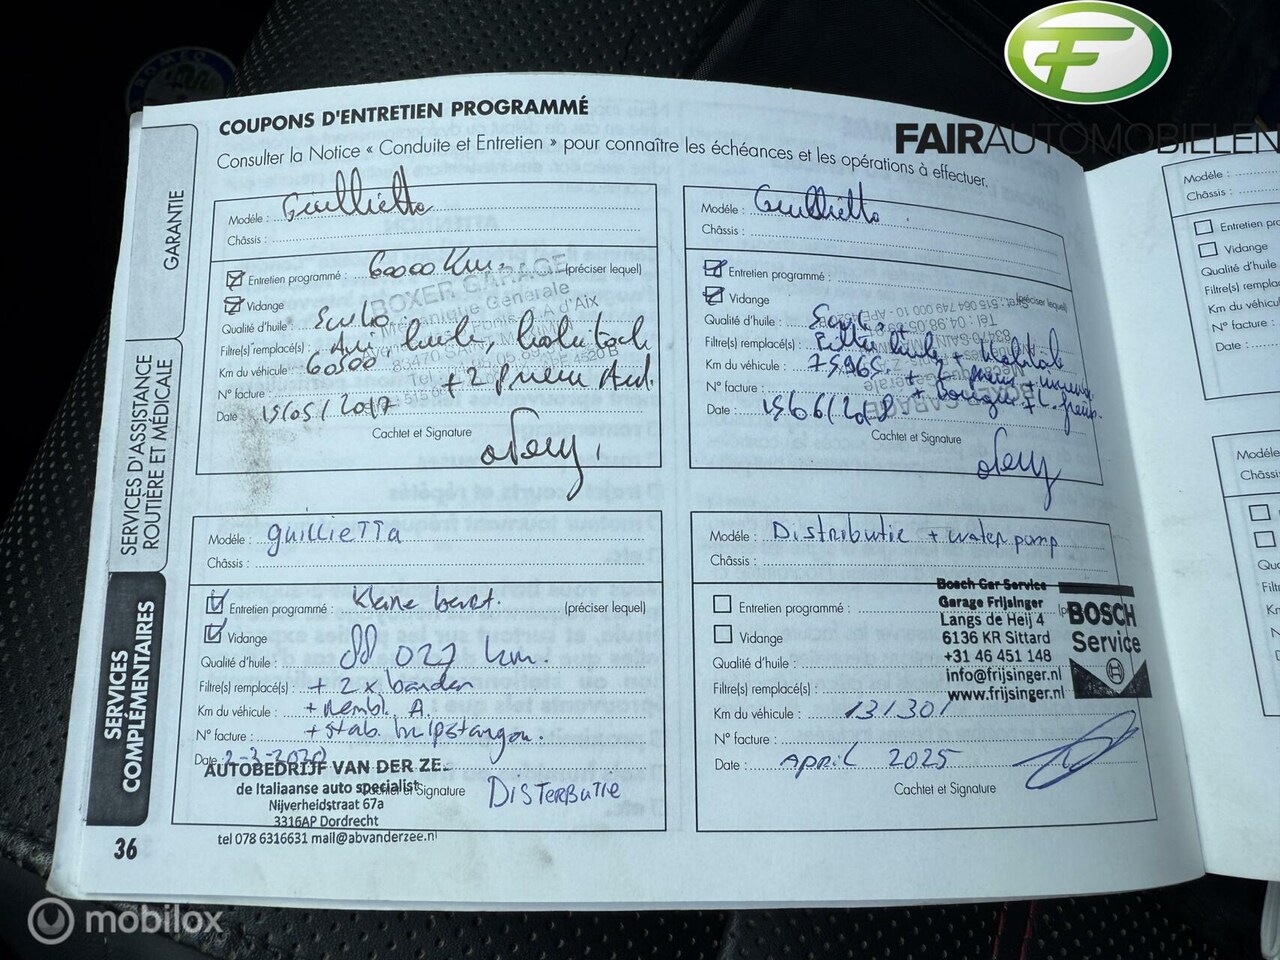 FAIRAUTOMOBIELEN
COUPONS D'ENTRETIEN PROGRAMMÉ
Consulter la Notice « Conduite et Entretien » pour connaître les échéances et les opérations à effectuer.
GARANTIE
SERVICES D'ASSISTANCE
ROUTIÈRE ET MÉDICALE
SERVICES
COMPLÉMENTAIRES
Modèle : Guillietta
Châssis :
Entretien programmé : 60000 Km. (préciser lequel)
Vidange
BOXER GARAGE
Mécanique Générale
Qualité d'huile :
Filtre(s) remplacé(s) : huile,
Km du véhicule : 60500
N° facture : + 2 pneu
Date : 15/05/2017
Cachtet et Signature
Modèle : Guillietta
Châssis :
Entretien programmé : (préciser lequel)
Vidange
Qualité d'huile :
Filtre(s) remplacé(s) : huile +
Km du véhicule : 75965
N° facture :
Date : 15/06/2018
Cachtet et Signature
Modèle : guillieTTa
Châssis :
Entretien programmé : Kleine beurt. (préciser lequel)
Vidange
Qualité d'huile : 88 027 km.
Filtre(s) remplacé(s) : + 2 x banden
Km du véhicule : + rembl. A.
N° facture : + stab. hulpstangen.
Date : 2-3-2020
AUTOBEDRIJF VAN DER ZE
de Italiaanse auto specialist
Cachtet et Signature
DISTERBUTIE
Nijverheidstraat 67a
3316AP Dordrecht
tel 078 6316631 mail@abvanderzee.nl
Modèle : Distributie + water pomp
Châssis :
Entretien programmé :
Vidange
Qualité d'huile :
Filtre(s) remplacé(s) :
Km du véhicule : 131301
N° facture :
Date : April 2025
Cachtet et Signature
Bosch Car Service
Garage Frijsinger
Langs de Heij 4
6136 KR Sittard
+31 46 451 148
info@frijsinger.nl
www.frijsinger.nl
BOSCH
Service
36
Modèle :
Châssis :
Entretien pro
Vidange
Qualité d'huile
Filtre(s) rempla
Km du véhicu
N° facture :
Date :
Modèle
Châssis
mobilox